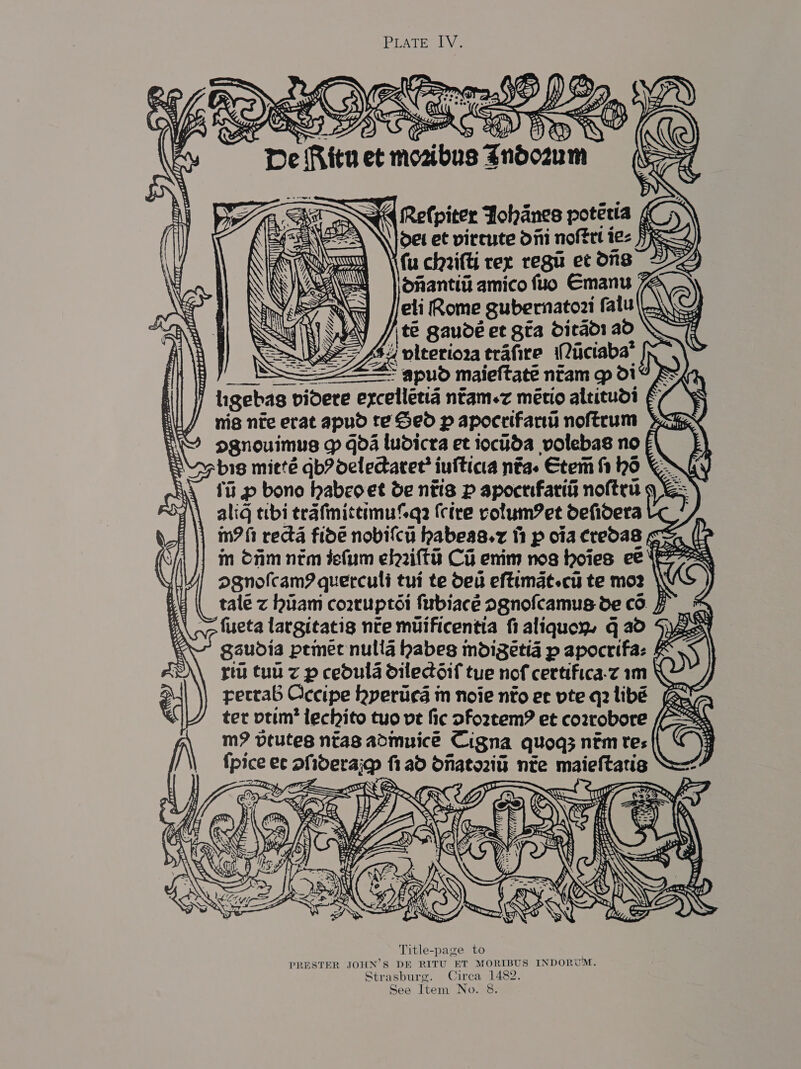 PLATE IV.
De Ritu et moribus Indorum
Reſpiter Johānes potētia
dei et virtute dñi noſtri ie⸗
ſu chriſti rex regū et dñs
dñantiū amico ſuo Emanu
eli Rome gubernatori ſalu
tē gaudē et grā ditādi ad
vlteriora trāſire Nūciabaᵗ
apud maieſtatē nr̄am ꝙ di
ligebas videre excellētiā nr̄am.⁊ mētio altitudi
nis nr̄e erat apud te Sed p apocriſariū noſtrum
ꝯgnouimus ꝙ q̄dā ludicra et iocūda volebas no
bis mitt'e qb⁹ delectaretᵗ iuſticia nr̄a. Etem̄ ſi hō
ſū ꝓ bono habeo et de nr̄is p apocriſariū noſtrū
aliq̄ tibi trāſmittimuſ.q2 ſcire volum⁹ et deſidera
m⁹ ſi rectā fidē nobiſcū habeas.⁊ ſi p oīa credas
in dñm nr̄m ieſum chriſtū Cū enim nos hoīes eē
ꝯgnoſcam⁹ querculi tui te deū eſtimāt.cū te mor
talē ⁊ hūani corruptōi ſubiacē ꝯgnoſcamus de cō
ſueta largitatis nr̄e mūificentia ſi aliquoꝝ q̄ ad
gaudia ptinēt nullā habes indigētiā p apocriſa⸗
riū tuū ⁊ p cedulā dilectōiſ tue noſ certifica.⁊ im
petrab Accipe hyperūcā in noīe nr̄o et vte q2 libē
ter vtimᵗ lechito tuo vt ſic ꝯfortem⁹ et corrobore
m⁹ v̄tutes nr̄as admuicē Cigna quoqꝫ nr̄m re⸗
ſpice et ꝯſidera;ꝙ ſi ad dñatoriū nr̄e maieſtatis
Title-page to
PRESTER JOHN'S DE RITU ET MORIBUS INDORUM.
Strasburg. Circa 1482.
See Item No. 8.